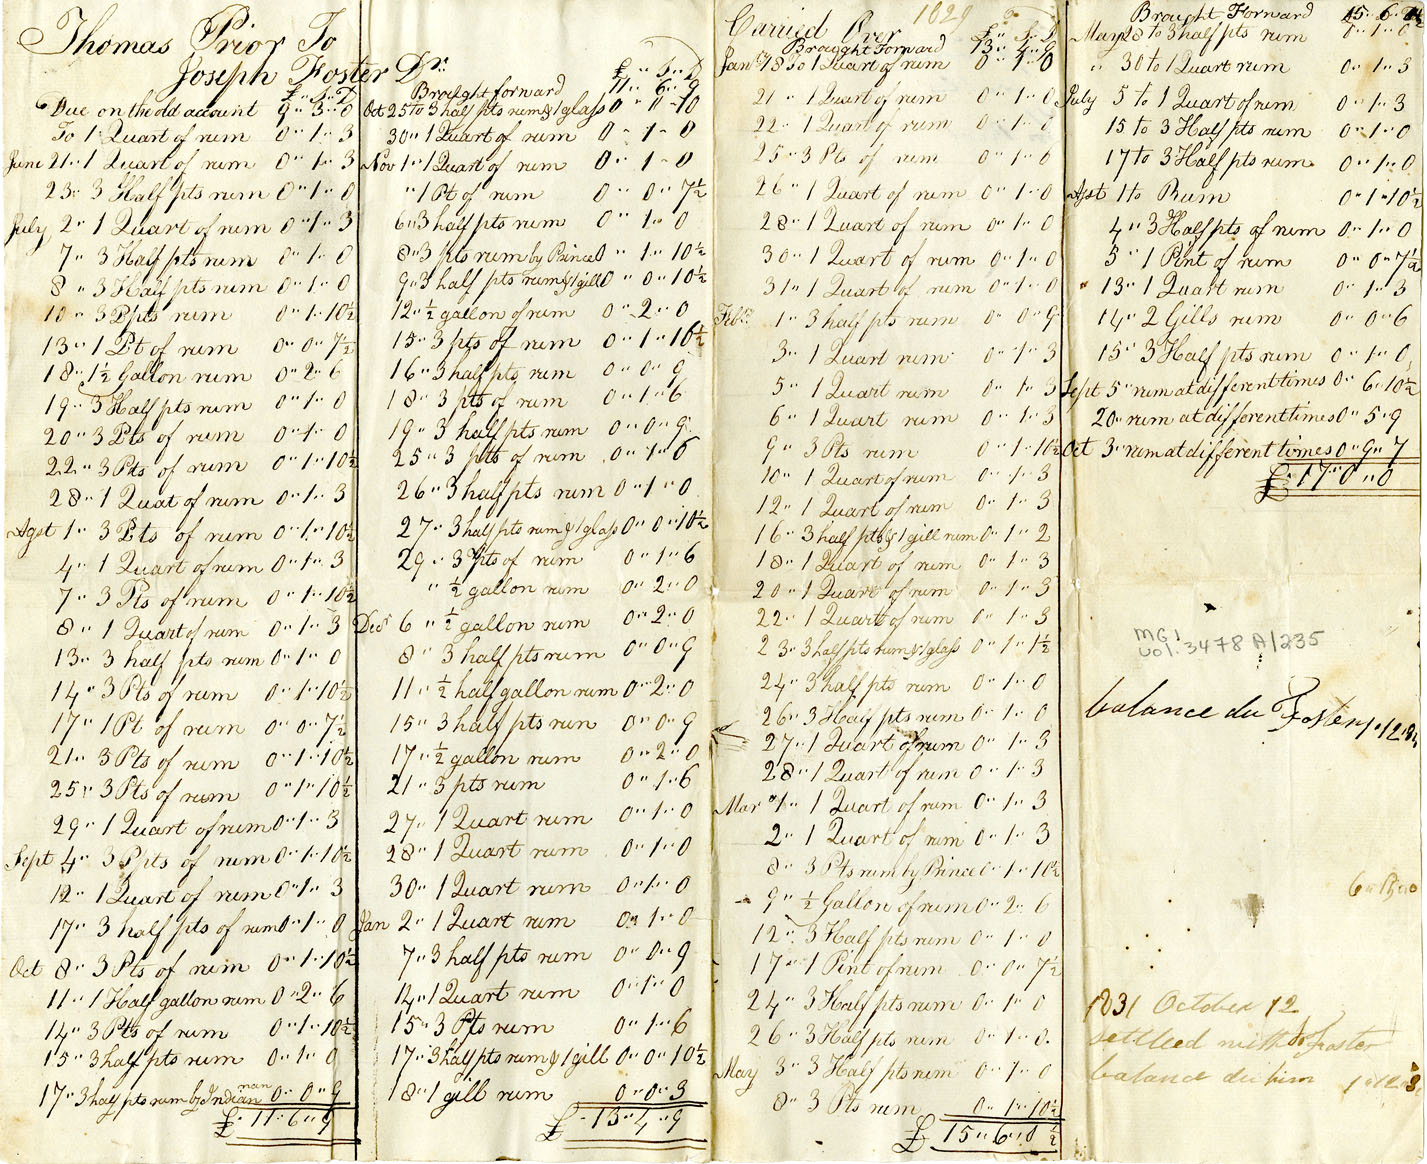 Thomas Prior To
Joseph Foster Dr.
£ " S " D
Due on the old account 9 " 3 " 0
To 1 Quart of rum 0 " 1 " 3
June 21 " 1 Quart of rum 0 " 1 " 3
23 " 3 Half pts rum 0 " 1 " 0
July 2 " 1 Quart of rum 0 " 1 " 3
7 " 3 Half pts rum 0 " 1 " 0
8 " 3 Half pts rum 0 " 1 " 0
10 " 3 Ppts rum 0 " 1 " 10½
13 " 1 Pt of rum 0 " 0 " 7½
18 " 1½ Gallon rum 0 " 2 " 6
19 " 3 Half pts rum 0 " 1 " 0
20 " 3 Pts of rum 0 " 1 " 0
22 " 3 Pts of rum 0 " 1 " 10½
28 " 1 Quat of rum 0 " 1 " 3
Agst 1 " 3 Pts of rum 0 " 1 " 10½
4 " 1 Quart of rum 0 " 1 " 3
7 " 3 Pts of rum 0 " 1 " 10½
8 " 1 Quart of rum 0 " 1 " 3
13 " 3 half pts rum 0 " 1 " 0
14 " 3 Pts of rum 0 " 1 " 10½
17 " 1 Pt of rum 0 " 0 " 7½
21 " 3 Pts of rum 0 " 1 " 10½
25 " 3 Pts of rum 0 " 1 " 10½
29 " 1 Quart of rum 0 " 1 " 3
Sept 4 " 3 Ppts of rum 0 " 1 " 10½
12 " 1 Quart of rum 0 " 1 " 3
17 " 3 half pts of rum 0 " 1 " 0
Oct 8 " 3 Pts of rum 0 " 1 " 10½
11 " 1 Half gallon rum 0 " 2 " 6
14 " 3 Pts of rum 0 " 1 " 10½
15 " 3 half pts rum 0 " 1 " 0
17 " 3 half pts rum by Indian man 0 " 0 " 9
£ " 11 " 6 " 9
£ " S " D
Brought forward 11 " 6 " 9
Oct 25 to 3 half pts rum & 1 glass 0 " 0 " 10
30 " 1 Quart of rum 0 " 1 " 0
Nov 1 " 1 Quart of rum 0 " 1 " 0
" 1 Pt of rum 0 " 0 " 7½
6 " 3 half pts rum 0 " 1 " 0
8 " 3 pts rum by Prince 0 " 1 " 10½
9 " 3 half pts rum & 1 gill 0 " 0 " 10½
12 " ½ gallon of rum 0 " 2 " 0
15 " 3 pts of rum 0 " 1 " 10½
16 " 3 half pts rum 0 " 0 " 9
18 " 3 pts of rum 0 " 1 " 6
19 " 3 half pts rum 0 " 0 " 9
25 " 3 pts of rum 0 " 1 " 6
26 " 3 half pts rum 0 " 1 " 0
27 " 3 half pts rum & 1 glass 0 " 0 " 10½
29 " 3 Pts of rum 0 " 1 " 6
" ½ gallon rum 0 " 2 " 0
Decr 6 " ½ gallon rum 0 " 2 " 0
8 " 3 half pts rum 0 " 0 " 9
11 " ½ half gallon rum 0 " 2 " 0
15 " 3 half pts rum 0 " 0 " 9
17 " ½ gallon rum 0 " 2 " 0
21 " 3 pts rum 0 " 1 " 6
27 " 1 Quart rum 0 " 1 " 0
28 " 1 Quart rum 0 " 1 " 0
30 " 1 Quart rum 0 " 1 " 0
Jan 2 " 1 Quart rum 0 " 1 " 0
7 " 3 half pts rum 0 " 0 " 9
14 " 1 Quart rum 0 " 1 " 0
15 " 3 Pts rum 0 " 1 " 6
17 " 3 half pts rum & 1 gill 0 " 0 " 10½
18 " 1 gill rum 0 " 0 " 3
£ " 13 " 4 " 9
Carried Over 1829
£ " S " D
Brought Forward 13 " 4 " 9
Jany 18 to 1 Quart of rum 0 " 1 " 0
21 " 1 Quart of rum 0 " 1 " 0
22 " 1 Quart of rum 0 " 1 " 0
25 " 3 Pt of rum 0 " 1 " 6
26 " 1 Quart of rum 0 " 1 " 0
28 " 1 Quart of rum 0 " 1 " 0
30 " 1 Quart of rum 0 " 1 " 0
31 " 1 Quart of rum 0 " 1 " 0
Febr 1 " 3 half pts rum 0 " 0 " 9
3 " 1 Quart rum 0 " 1 " 3
5 " 1 Quart rum 0 " 1 " 3
6 " 1 Quart rum 0 " 1 " 3
9 " 3 Pts rum 0 " 1 " 10½
10 " 1 Quart of rum 0 " 1 " 3
12 " 1 Quart of rum 0 " 1 " 3
16 " 3 half pts & 1 gill rum 0 " 1 " 2
18 " 1 Quart of rum 0 " 1 " 3
20 " 1 Quart of rum 0 " 1 " 3
22 " 1 Quart of rum 0 " 1 " 3
23 " 3 half pts rum & 1 glass 0 " 1 " 1½
24 " 3 half pts rum 0 " 1 " 0
26 " 3 Half pts rum 0 " 1 " 0
27 " 1 Quart of rum 0 " 1 " 3
28 " 1 Quart of rum 0 " 1 " 3
Mar 1 " 1 Quart of rum 0 " 1 " 3
2 " 1 Quart of rum 0 " 1 " 3
8 " 3 Pts rum by Prince 0 " 1 " 10½
9 " ½ Gallon of rum 0 " 2 " 6
12 " 3 Half pts rum 0 " 1 " 0
17 " 1 Pint of rum 0 " 0 " 7½
24 " 3 Half pts rum 0 " 1 " 0
26 " 3 Half pts rum 0 " 1 " 0
May 3 " 3 Half pts rum 0 " 1 " 0
8 " 3 Pts rum 0 " 1 " 10½
£ 15 " 6 " 0½
Brought Forward 15 " 6 "
May 28 to 3 half pts rum 0 " 1 " 0
" 30 to 1 Quart rum 0 " 1 " 3
July 5 to 1 Quart of rum 0 " 1 " 3
15 to 3 Half pts rum 0 " 1 " 0
17 to 3 Half pts rum 0 " 1 " 0
Agst 1 to Rum 0 " 1 " 10½
4 " 3 Half pts of rum 0 " 1 " 0
5 " 1 Pint of rum 0 " 0 " 7½
13 " 1 Quart rum 0 " 1 " 3
14 " 2 Gills rum 0 " 0 " 6
15 " 3 Half pts rum 0 " 1 " 0
Sept 5 " rum at different times 0 " 6 " 10½
20 " rum at different times 0 " 5 " 9
Oct 3 " rum at different times 0 " 9 " 7
£ " 17 " 0 " 0
MG1
vol. 3478 A1235
balance du Foster 1 " 12
1831 October 12
settled with Jo Foster
balance du him